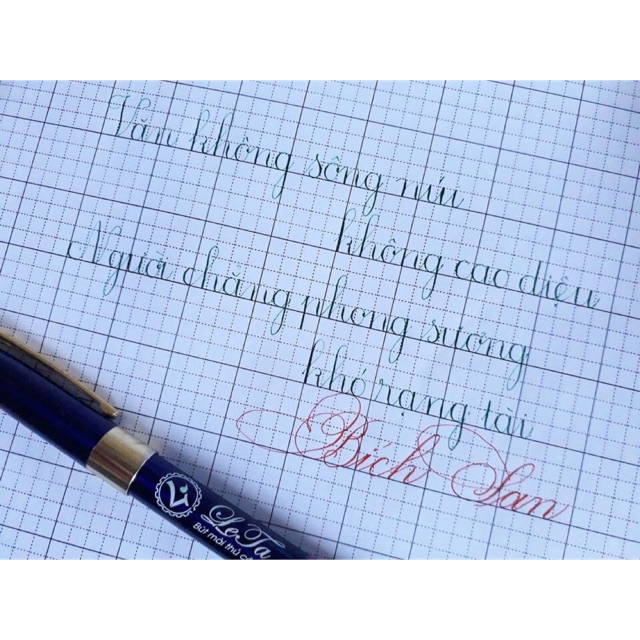 Văn không sông núi
không cao diệu
Người chẳng phong sương
khó rạng tài
Bích San
LeTa
Bút mài thủ